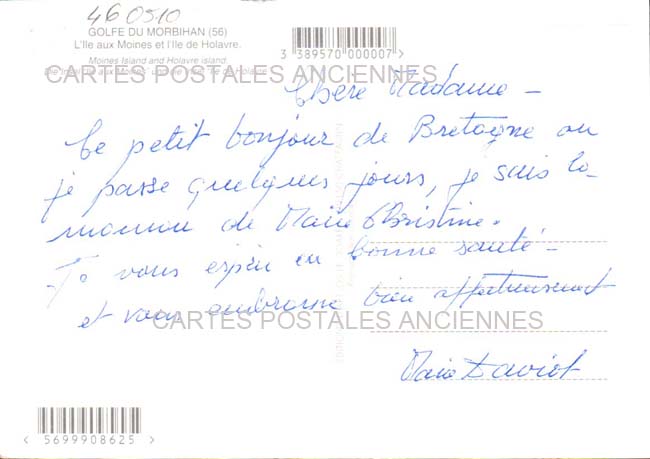 460510
GOLFE DU MORBIHAN (56)
L'Ile aux Moines et l'Ile de Holavre.
Moines Island and Holavre island.
3 389570 000007
CARTES POSTALES ANCIENNES
Chère Madame -
Ce petit bonjour de Bretagne ou
je passe quelques jours, je suis la
maman de Marie Christine.
Je vous espère en bonne santé -
et vous embrasse bien affectueusement
CARTES POSTALES ANCIENNES
Marie Daviot
5699908625